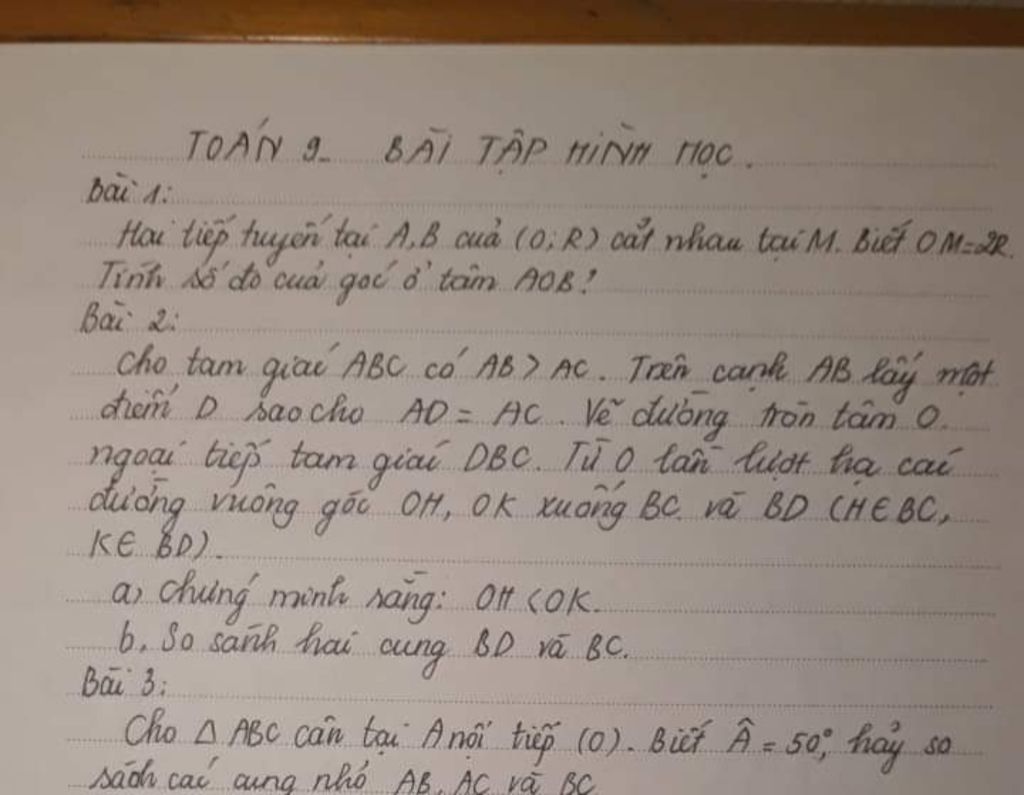 TOÁN 9_ BÀI TẬP HÌNH HỌC.
Bài 1:
Hai tiếp tuyến tại A,B của (O;R) cắt nhau tại M. Biết OM=2R.
Tính số đo của góc ở tâm AOB!
Bài 2:
Cho tam giác ABC có AB > AC. Trên cạnh AB lấy một
điểm D sao cho AD = AC. Vẽ đường tròn tâm O.
ngoại tiếp tam giác DBC. Từ O lần lượt hạ các
đường vuông góc OH, OK xuống BC và BD (H∈BC,
K∈ BD).
a, Chứng minh rằng: OH < OK.
b, So sánh hai cung BD và BC.
Bài 3:
Cho Δ ABC cân tại A nội tiếp (O). Biết Â = 50°, hãy so
sách các cung nhỏ AB, AC và BC